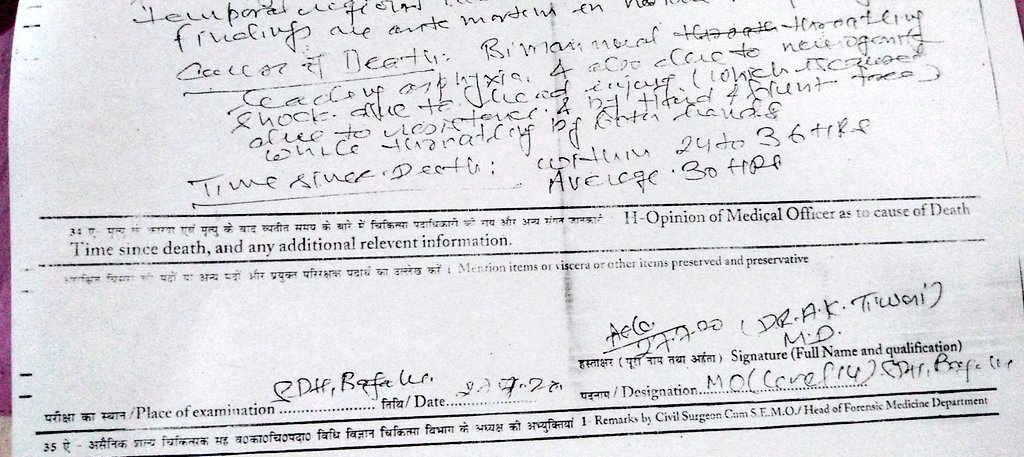 findings are ante mortem in
Cause of Death: Bimannual throatling
leading asphyxia. & also due to neurogenic
shock due to Head injury (which is caused
due to resistence & by Hard & blunt force)
while throatling by both hands
Time since Death: within 24 to 36 HRS
Average 30 HRS
34 ए- मृत्यु के कारण एवं मृत्यु के बाद व्यतीत समय के बारे में चिकित्सा पदाधिकारी की राय और अन्य संगत जानकारी H-Opinion of Medical Officer as to cause of Death
Time since death, and any additional relevent information.
की पदों या अन्य पदों और प्रयुक्त परिरक्षक पदार्थ का उल्लेख करें । Mention items or viscera or other items preserved and preservative
(DR. A.K. Tiwari)
M.D.
हस्ताक्षर ( पूरा नाम तथा अर्हता ) Signature (Full Name and qualification)
SDH, परीक्षा का स्थान/Place of examination तिथि/Date
पदनाम/Designation MO SDH,
35 ऐ - असैनिक शल्य चिकित्सक सह व०का०चि०पदा० विधि विज्ञान चिकित्सा विभाग के अध्यक्ष की अभ्युक्तियां 1- Remarks by Civil Surgeon Cum S.E.M.O./ Head of Forensic Medicine Department